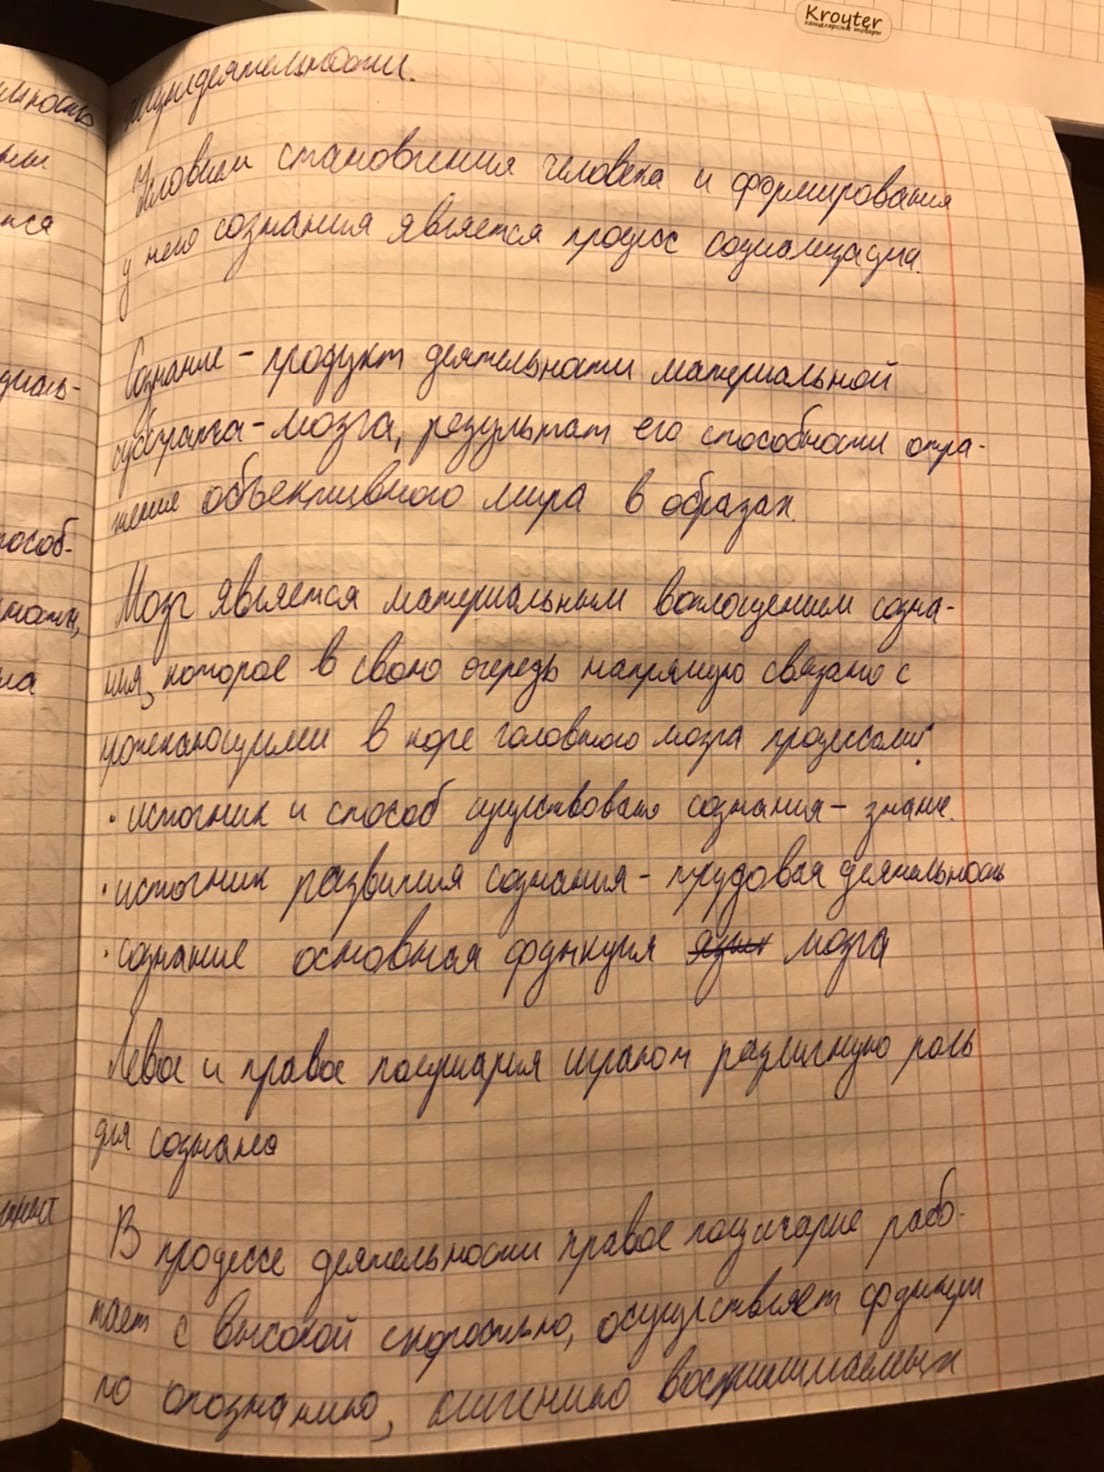 Kroyter
канцелярские товары
жизнедеятельности.
Условием становления человека и формирования
у него сознания является процесс социализации.
Сознание - продукт деятельности материальной
субстрата - мозга, результат его способности отра-
жения объективного мира в образах.
Мозг является материальным воплощением созна-
ния, которое в свою очередь напрямую связано с
протекающими в коре головного мозга процессами:
• источник и способ существования сознания - знание.
• источник развития сознания - трудовая деятельность
• сознание основная функция мозга
Левое и правое полушария играют различную роль
для сознания
В процессе деятельности правое полушарие рабо-
тает с высокой скоростью, осуществляет функции
по опознанию, воспринимаемых
диаль-
пособ-